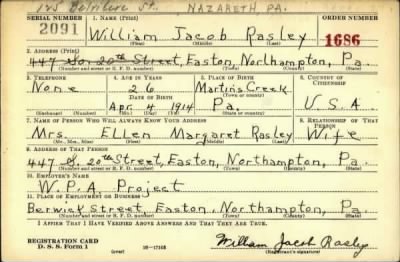 125 Belvidere St. NAZARETH PA.
SERIAL NUMBER 1. NAME (Print) ORDER NUMBER
2091 William Jacob Rasley 1686
(First) (Middle) (Last)
2. ADDRESS (Print)
447 So. 20th Street, Easton, Northampton, Pa.
(Number and street or R. F. D. number) (Town) (County) (State)
3. TELEPHONE 4. AGE IN YEARS 5. PLACE OF BIRTH 6. COUNTRY OF CITIZENSHIP
None 26 Martins Creek
DATE OF BIRTH (Town or county)
Apr. 4 1914 Pa. U.S.A.
(Exchange) (Number) (Mo.) (Day) (Yr.) (State or country)
7. NAME OF PERSON WHO WILL ALWAYS KNOW YOUR ADDRESS 8. RELATIONSHIP OF THAT PERSON
Mrs. Ellen Margaret Rasley Wife
(Mr., Mrs., Miss) (First) (Middle) (Last)
9. ADDRESS OF THAT PERSON
447 S. 20th Street, Easton, Northampton, Pa.
(Number and street or R. F. D. number) (Town) (County) (State)
10. EMPLOYER'S NAME
W.P.A. Project
11. PLACE OF EMPLOYMENT OR BUSINESS
Berwick Street, Easton, Northampton, Pa.
(Number and street or R. F. D. number) (Town) (County) (State)
I AFFIRM THAT I HAVE VERIFIED ABOVE ANSWERS AND THAT THEY ARE TRUE.
REGISTRATION CARD
D. S. S. Form 1 (over) 16—17105 William Jacob Rasley